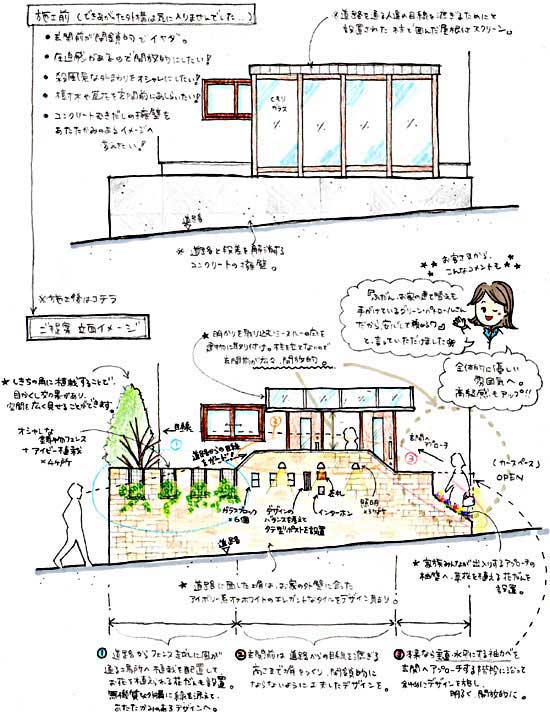 施工前（できあがった外構は気に入りませんでした...）
・玄関前が閉鎖的でイヤダ。
・圧迫感があるので開放的にしたい!
・殺風景な外まわりをオシャレにしたい!
・植木や草花を玄関前にあしらいたい!
・コンクリートむきだしの擁壁を
あたたかみのあるイメージへ
変えたい!
※道路を通る人達の目線を遮ぎるためにと
設置された 枠で囲んだ屋根付スクリーン。
くもり
ガラス
道路
※道路と段差を解消する
コンクリートの擁壁。
※施工後はコチラ
ご提案 立面イメージ
お客さまから、
こんなコメントも
「ふだん、お家の建て替えも
手がけているグリーンパトロールさん
だから安心して頼める」
と言っていただけました
全体的に優しい
雰囲気へ。
高級感もアップ!!
★明かりを取り込むシースルーの庇を
建物に取り付け。柱を立てないので
玄関前が広々、開放的。
★しきちの角に植栽することで、
目かくし効果があり、
空間を広く見せることができます。
オシャレな
鋳物フェンス
+アイビー植栽
×4ヶ所
目線
①
道路からの目線
をガード!
②
③
玄関へ
アプローチ
（カースペース）
OPEN
ガラスブロック
×6個
デザインの
バランスを考えて
タテ型ポストを設置
インターホン
表札
照明
×3ヶ所
道路
★家族みんなが出入りするアプローチの
袖壁へ、草花を植える花だんを
設置。
★道路に面した塀は、お家の外壁に合った
アイボリー系オフホワイトのエレガントなタイルをデザイン貼り。
①道路からフェンス越しに風が
通る場所へ植栽を配置して、
お花も植えられる花だんを設置。
無機質な外構に緑を添えて、
あたたかみのあるデザインへ。
②玄関前は道路からの目線を遮ぎる
高さまで塀をつくり、閉鎖的に
ならないように工夫したデザインを。
③本来なら垂直・水平にする袖カベを
玄関へアプローチする階段に沿って
斜めにデザインを施し、
明るく開放的に。